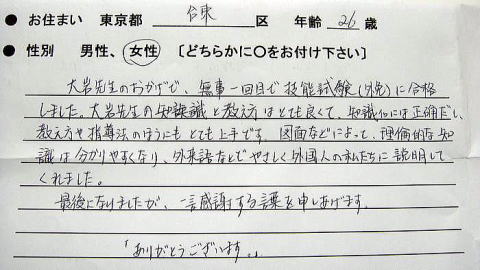 ● お住まい 東京都 台東 区 年齢 26 歳
● 性別 男性、女性 〔どちらかに○をお付け下さい〕
大岩先生のおかげで、無事一回目で技能試験(外免)に合格
しました。大岩先生の知識と教え方はとても良くて、知識には正確だし、
教え方や指導法のほうにもとても上手です。図面などによって、理論的な知
識は分かりやすくなり、外来語などでやさしく外国人の私たちに説明して
くれました。
最後になりましたが、一言感謝する言葉を申しあげます。
「ありがとうございます。」